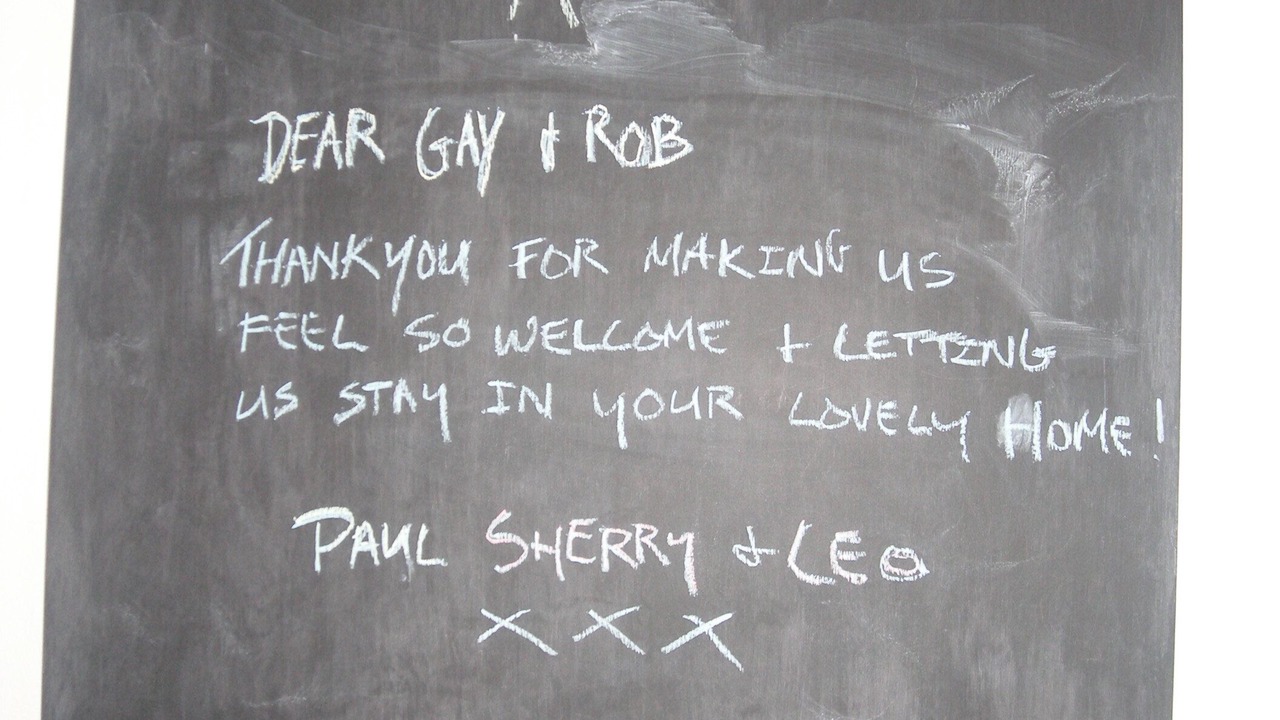 DEAR GAY + ROB
THANKYOU FOR MAKING US
FEEL SO WELCOME + LETTING
US STAY IN YOUR LOVELY HOME!
PAUL SHERRY + LEO
XXX